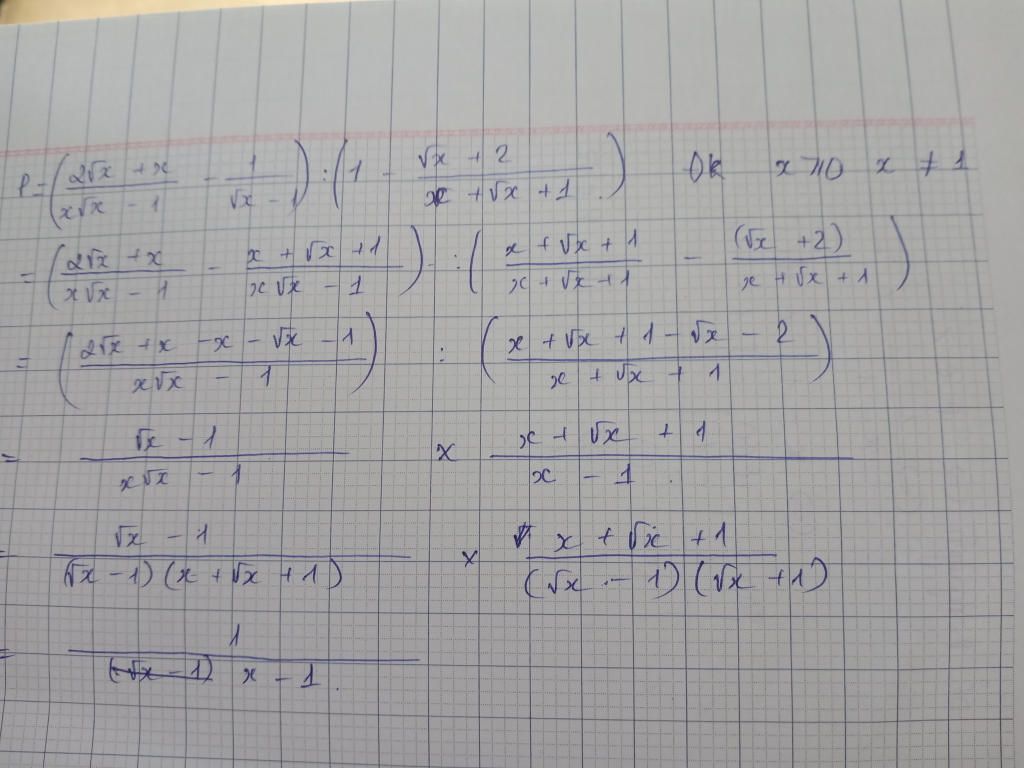 P = ( (2√x + x)/(x√x - 1) - 1/(√x - 1) ) : ( 1 - (√x + 2)/(x + √x + 1) ) Đk x ⩾ 0 x ≠ 1
= ( (2√x + x)/(x√x - 1) - (x + √x + 1)/(x√x - 1) ) : ( (x + √x + 1)/(x + √x + 1) - (√x + 2)/(x + √x + 1) )
= ( (2√x + x - x - √x - 1)/(x√x - 1) ) : ( (x + √x + 1 - √x - 2)/(x + √x + 1) )
= (√x - 1)/(x√x - 1) × (x + √x + 1)/(x - 1)
= (√x - 1)/((√x - 1)(x + √x + 1)) × (x + √x + 1)/((√x - 1)(√x + 1))
= 1/(x - 1)